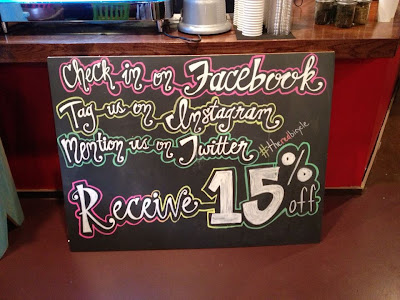 Check in on Facebook
Tag us on Instagram
Mention us on Twitter
#theredbicycle
Receive 15% off